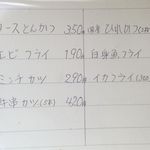 ースとんかつ 350
エビフライ 190
ミンチカツ 290
牛串カツ(5本) 420
国産ひれカツ
白身魚フライ
イカフライ